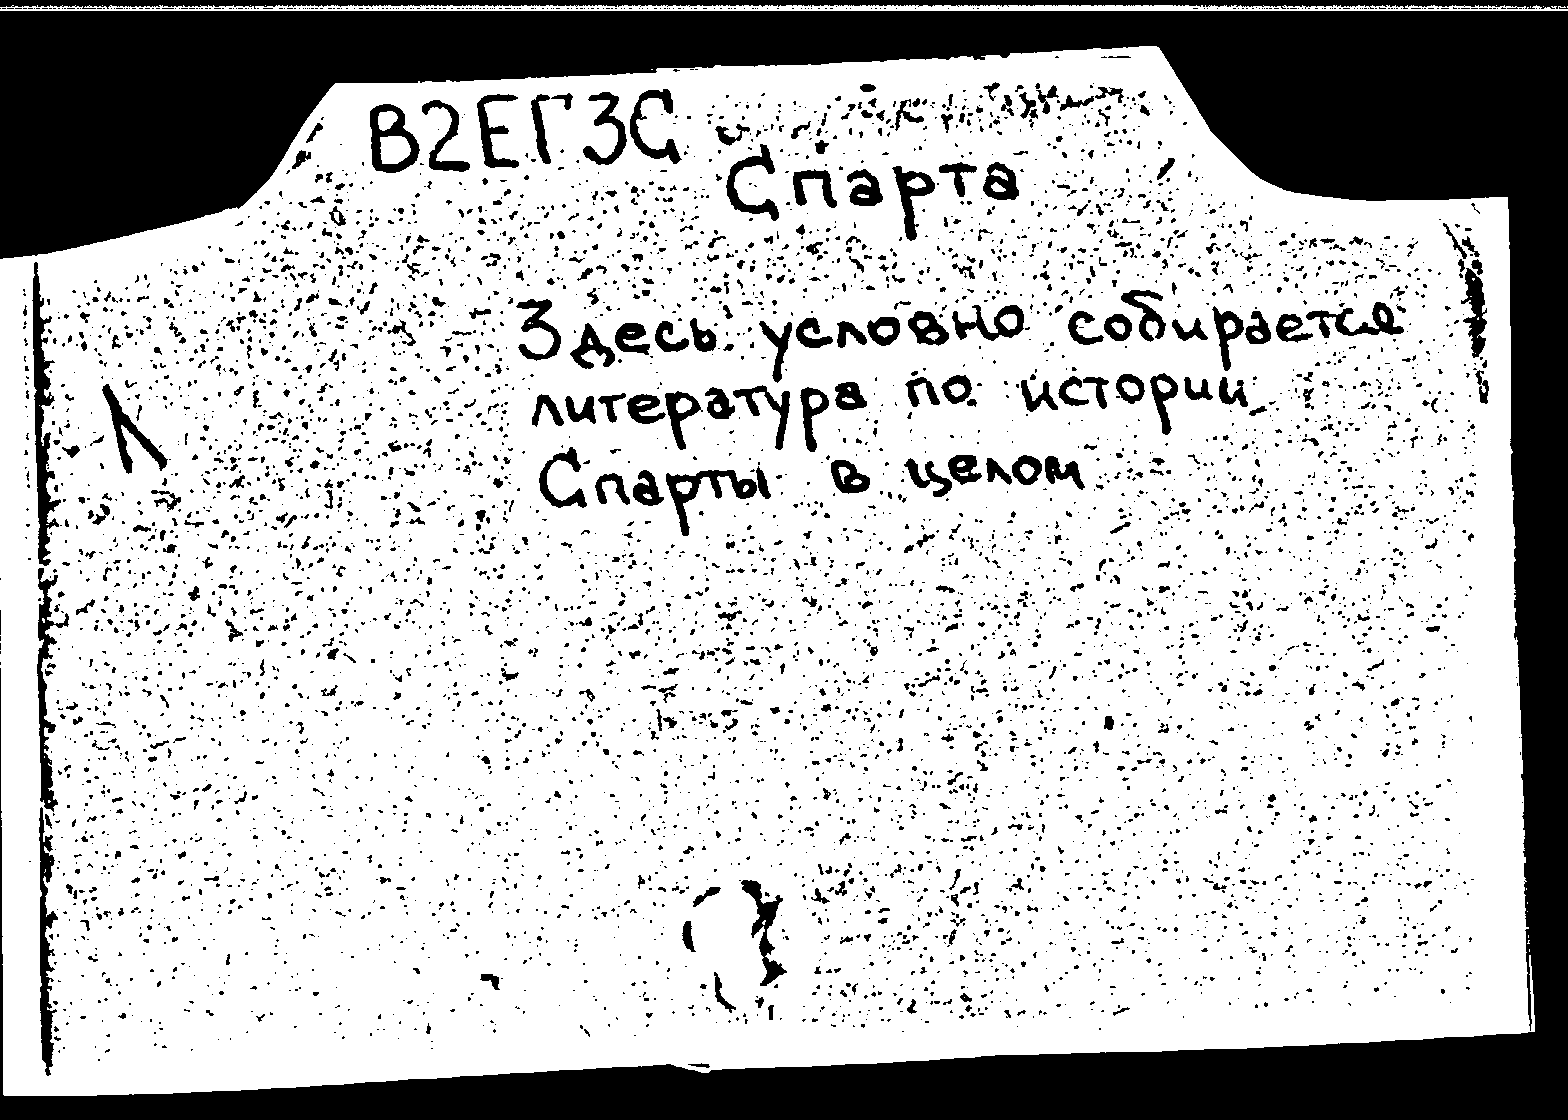 В2ЕГ3С
Спарта
Здесь условно собирается
литература по истории
Спарты в целом